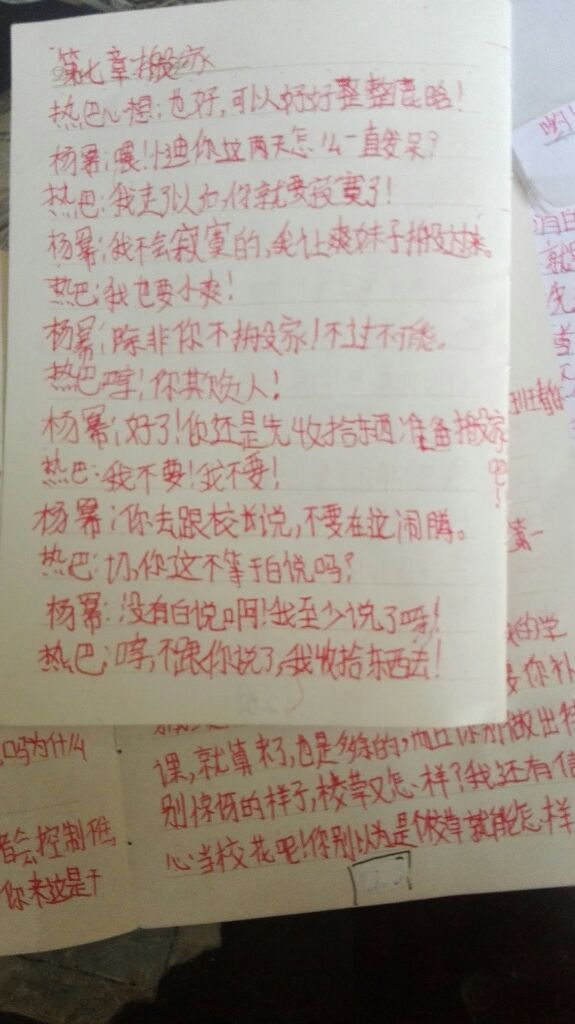 第七章搬家
热巴心想:也好,可以好好整整高晗!
杨幂:喂!小迪你这两天怎么一直发呆?
热巴:我走了以后,你就要寂寞了!
杨幂:我不会寂寞的,我让爽妹子搬过来。
热巴:我也要小爽!
杨幂:除非你不搬家!不过不可能。
热巴:哼!你欺负人!
杨幂:好了!你还是先收拾东西准备搬家吧!
热巴:我不要!我不要!
杨幂:你去跟校长说,不要在这闹腾。
热巴:切,你这不等于白说吗?
杨幂:没有白说啊!我至少说了呀!
热巴:哼,不跟你说了,我收拾东西去!
吗为什么
会控制
你来这是干
的学
你补
课,就算来了,也是多余的,而且你别做出特
别惊讶的样子,校草又怎样?我还有信
心当校花呢!你别以为是个校草就能怎样